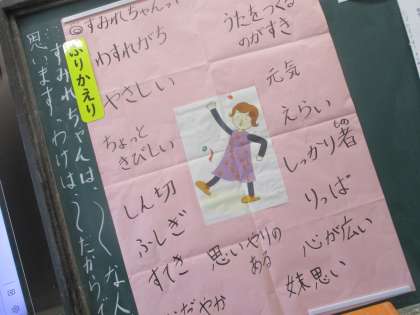 ◎すみれちゃんって
わすれがち
やさしい
ちょっと
さびしい
しん切
ふしぎ
すてき
うたをつくる
のがすき
元気
えらい
しっかり者
しの
りっぱ
思いやりの
ある
心が広い
妹思い
だやか
ふりかえり
すみれちゃんは、〜な人
思います。わけは、〜だからで